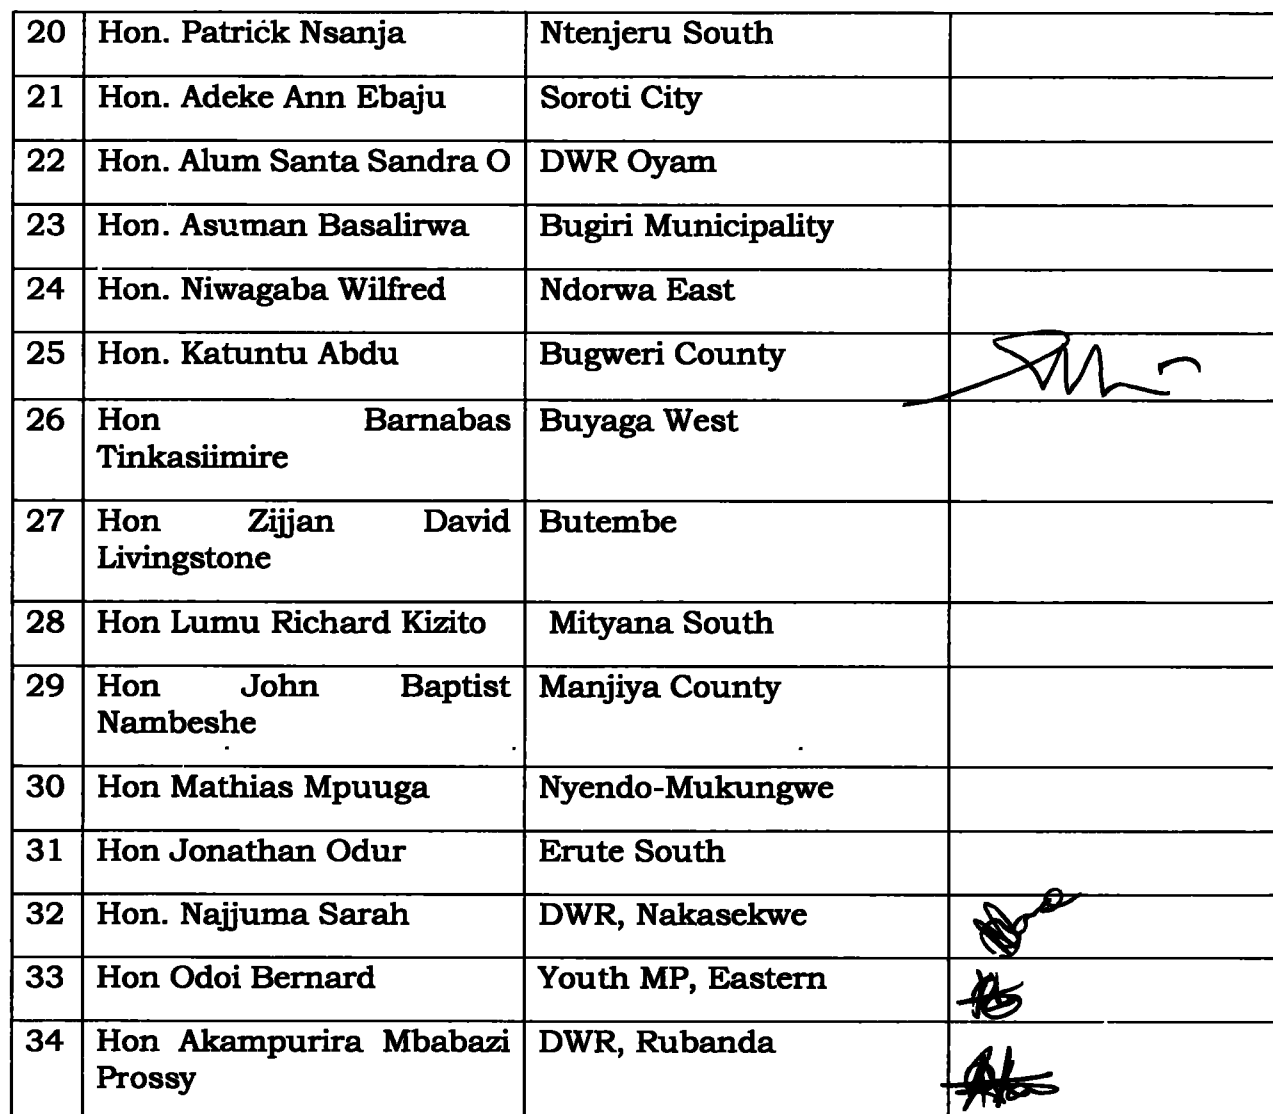 20 Hon. Patrick Nsanja Ntenjeru South
21 Hon. Adeke Ann Ebaju Soroti City
22 Hon. Alum Santa Sandra O DWR Oyam
23 Hon. Asuman Basalirwa Bugiri Municipality
24 Hon. Niwagaba Wilfred Ndorwa East
25 Hon. Katuntu Abdu Bugweri County
26 Hon Barnabas Buyaga West
Tinkasiimire
27 Hon Zijjan David Butembe
Livingstone
28 Hon Lumu Richard Kizito Mityana South
29 Hon John Baptist Manjiya County
Nambeshe
30 Hon Mathias Mpuuga Nyendo-Mukungwe
31 Hon Jonathan Odur Erute South
32 Hon. Najjuma Sarah DWR, Nakasekwe
33 Hon Odoi Bernard Youth MP, Eastern
34 Hon Akampurira Mbabazi DWR, Rubanda
Prossy